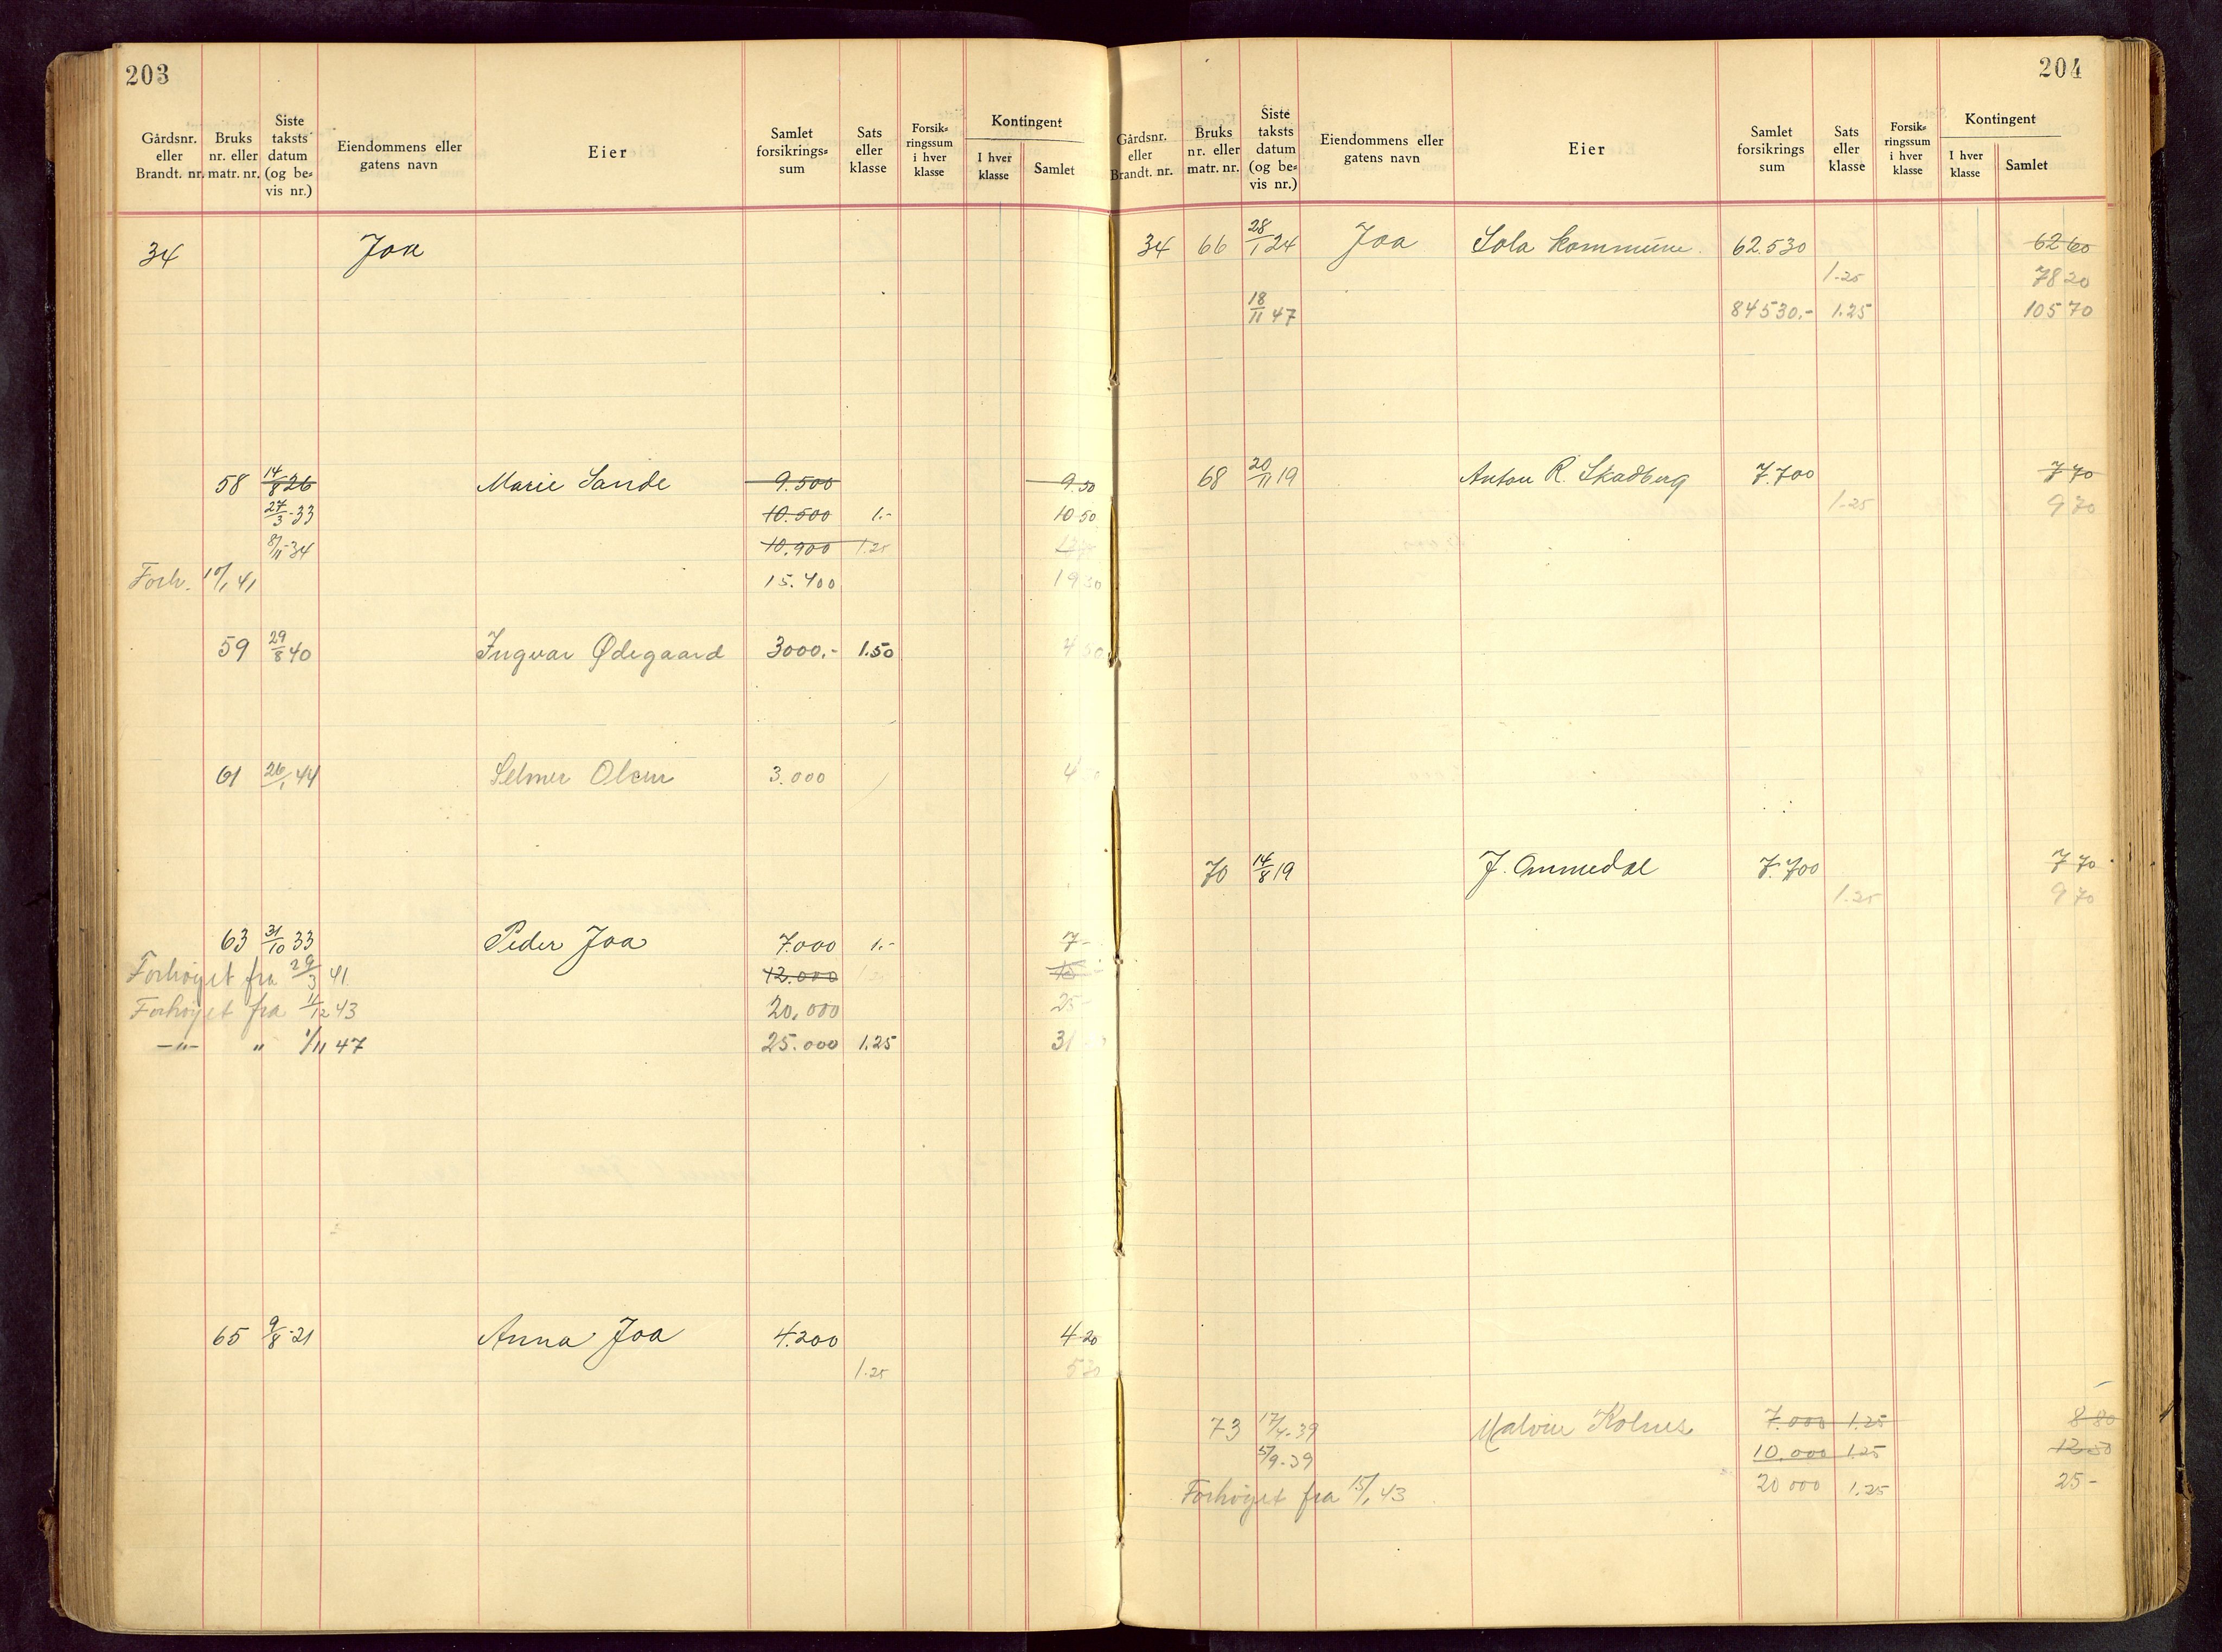 203
Gårdsnr. eller Brandt. nr. Bruks nr. eller matr. nr. Siste taksts datum (og bevis nr.) Eiendommens eller gatens navn Eier Samlet forsikrings= sum Sats eller klasse Forsik= ringssum i hver klasse Kontingent I hver klasse Samlet
34 Joa
58 14/8 26 Marie Sande 9.500 9.50
27/3-33 10.500 1.- 10.50
8/11-34 10.900 1.25
Forh. 10/1 41 15.400 19 30
59 29/8 40 Ingvar Ødegaard 3000.- 1.50 4 50
61 26/1 44 Selmer Olsen 3.000 4
63 31/10 33 Peder Joa 7.000 1.- 7-
Forhøyet fra 29/3 41 12.000 15
Forhøyet fra 11/12 43 20,000 25-
-"- " 1/11 47 25.000 1.25 31
65 9/8-21 Anna Joa 4.200 4 20
1.25 5 30
204
Gårdsnr. eller Brandt. nr. Bruks nr. eller matr. nr. Siste taksts datum (og be= vis nr.) Eiendommens eller gatens navn Eier Samlet forsikrings sum Sats eller klasse Forsik= ringssum i hver klasse Kontingent I hver klasse Samlet
34 66 28/1 24 Joa Sola kommune. 62.530 62 60
1.25 78 20
18/11 47 84530.- 1.25 105 70
68 20/11 19 Anton R. Skadberg 7.700 7 70
1.25 9 70
70 14/8 19 J. Ommedal 7.700 7 70
1.25 9 70
73 17/4-39 Malvin Kolnes 7.000 1.25 8 80
5/9-39 10.000 1.25 12 50
Forhøyet fra 15/1 43 20 000 1.25 25-